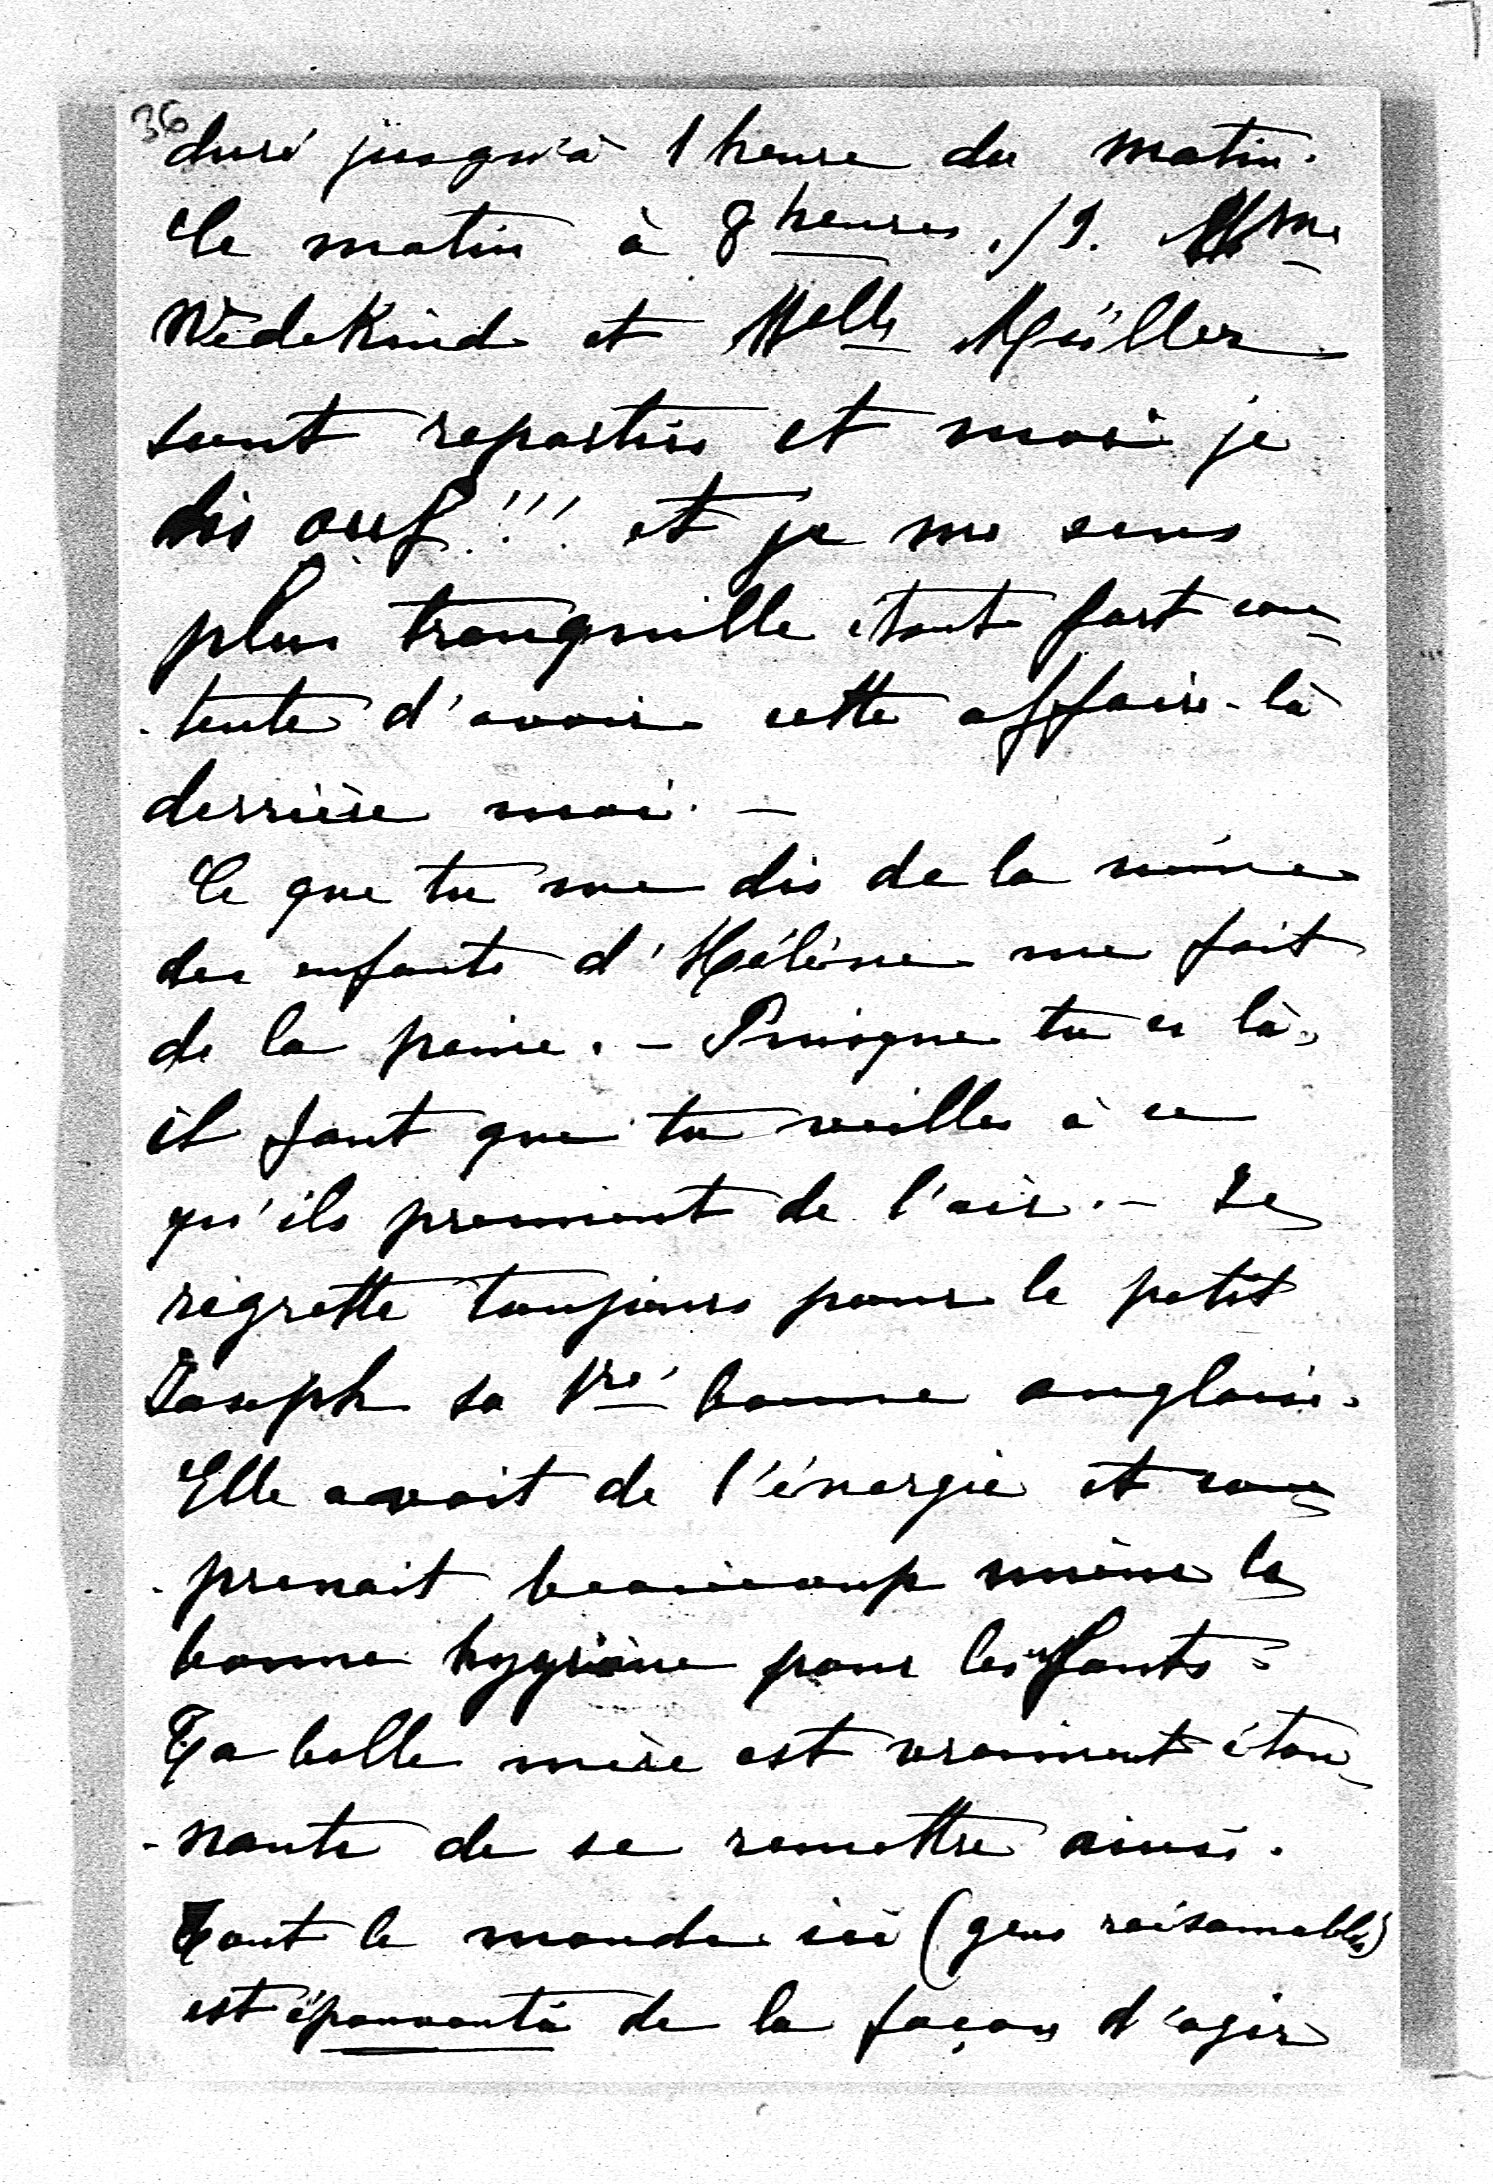 36
duré jusqu'à 1 heure du matin.
Ce matin à 8 heures 1/2. Mme
Wedekind et Melle Müller
sont reparties et moi je
dis ouf!!! et je me sens
plus tranquille étant fort con-
-tente d'avoir cette affaire-là
derrière moi. —
Ce que tu me dis de la mine
des enfants d'Hélène me fait
de la peine. – Puisque tu es là,
il faut que tu veilles à ce
qu'ils prennent de l'air. – Je
regrette toujours pour le petit
Joseph sa 1re bonne anglaise.
Elle avait de l'énergie et com-
-prenait beaucoup mieux la
bonne hygiène pour les enfants.
Ta belle mère est vraiment éton-
-nante de se remettre ainsi.
Tout le monde ici (gens raisonnables)
est épouvanté de la façon d'agir